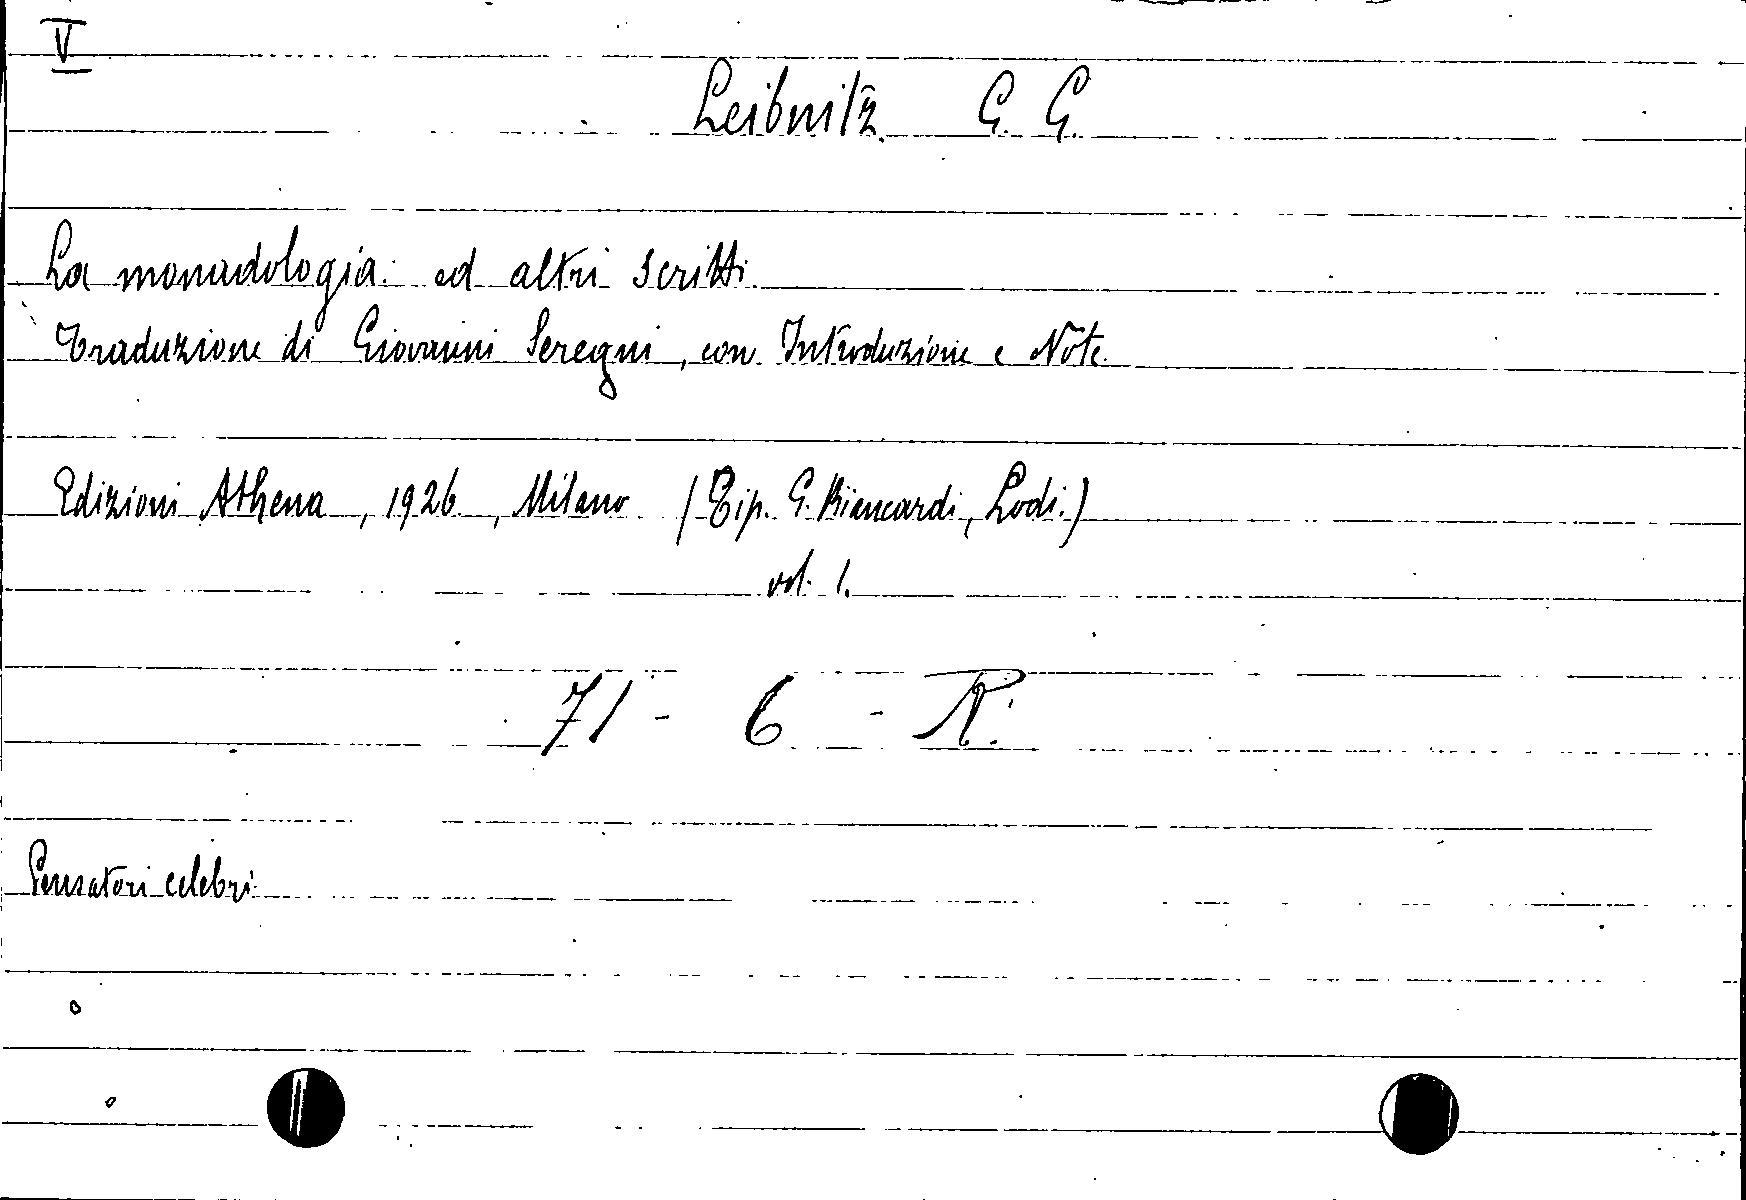 V
Leibnitz G. G.
La monadologia ed altri scritti
Traduzione di Giovanni Seregni, con Introduzione e Note
Edizioni Athena, 1926, Milano (Tip. G. Biancardi, Lodi.)
vol. 1.
71 - 6 - R.
Pensatori celebri